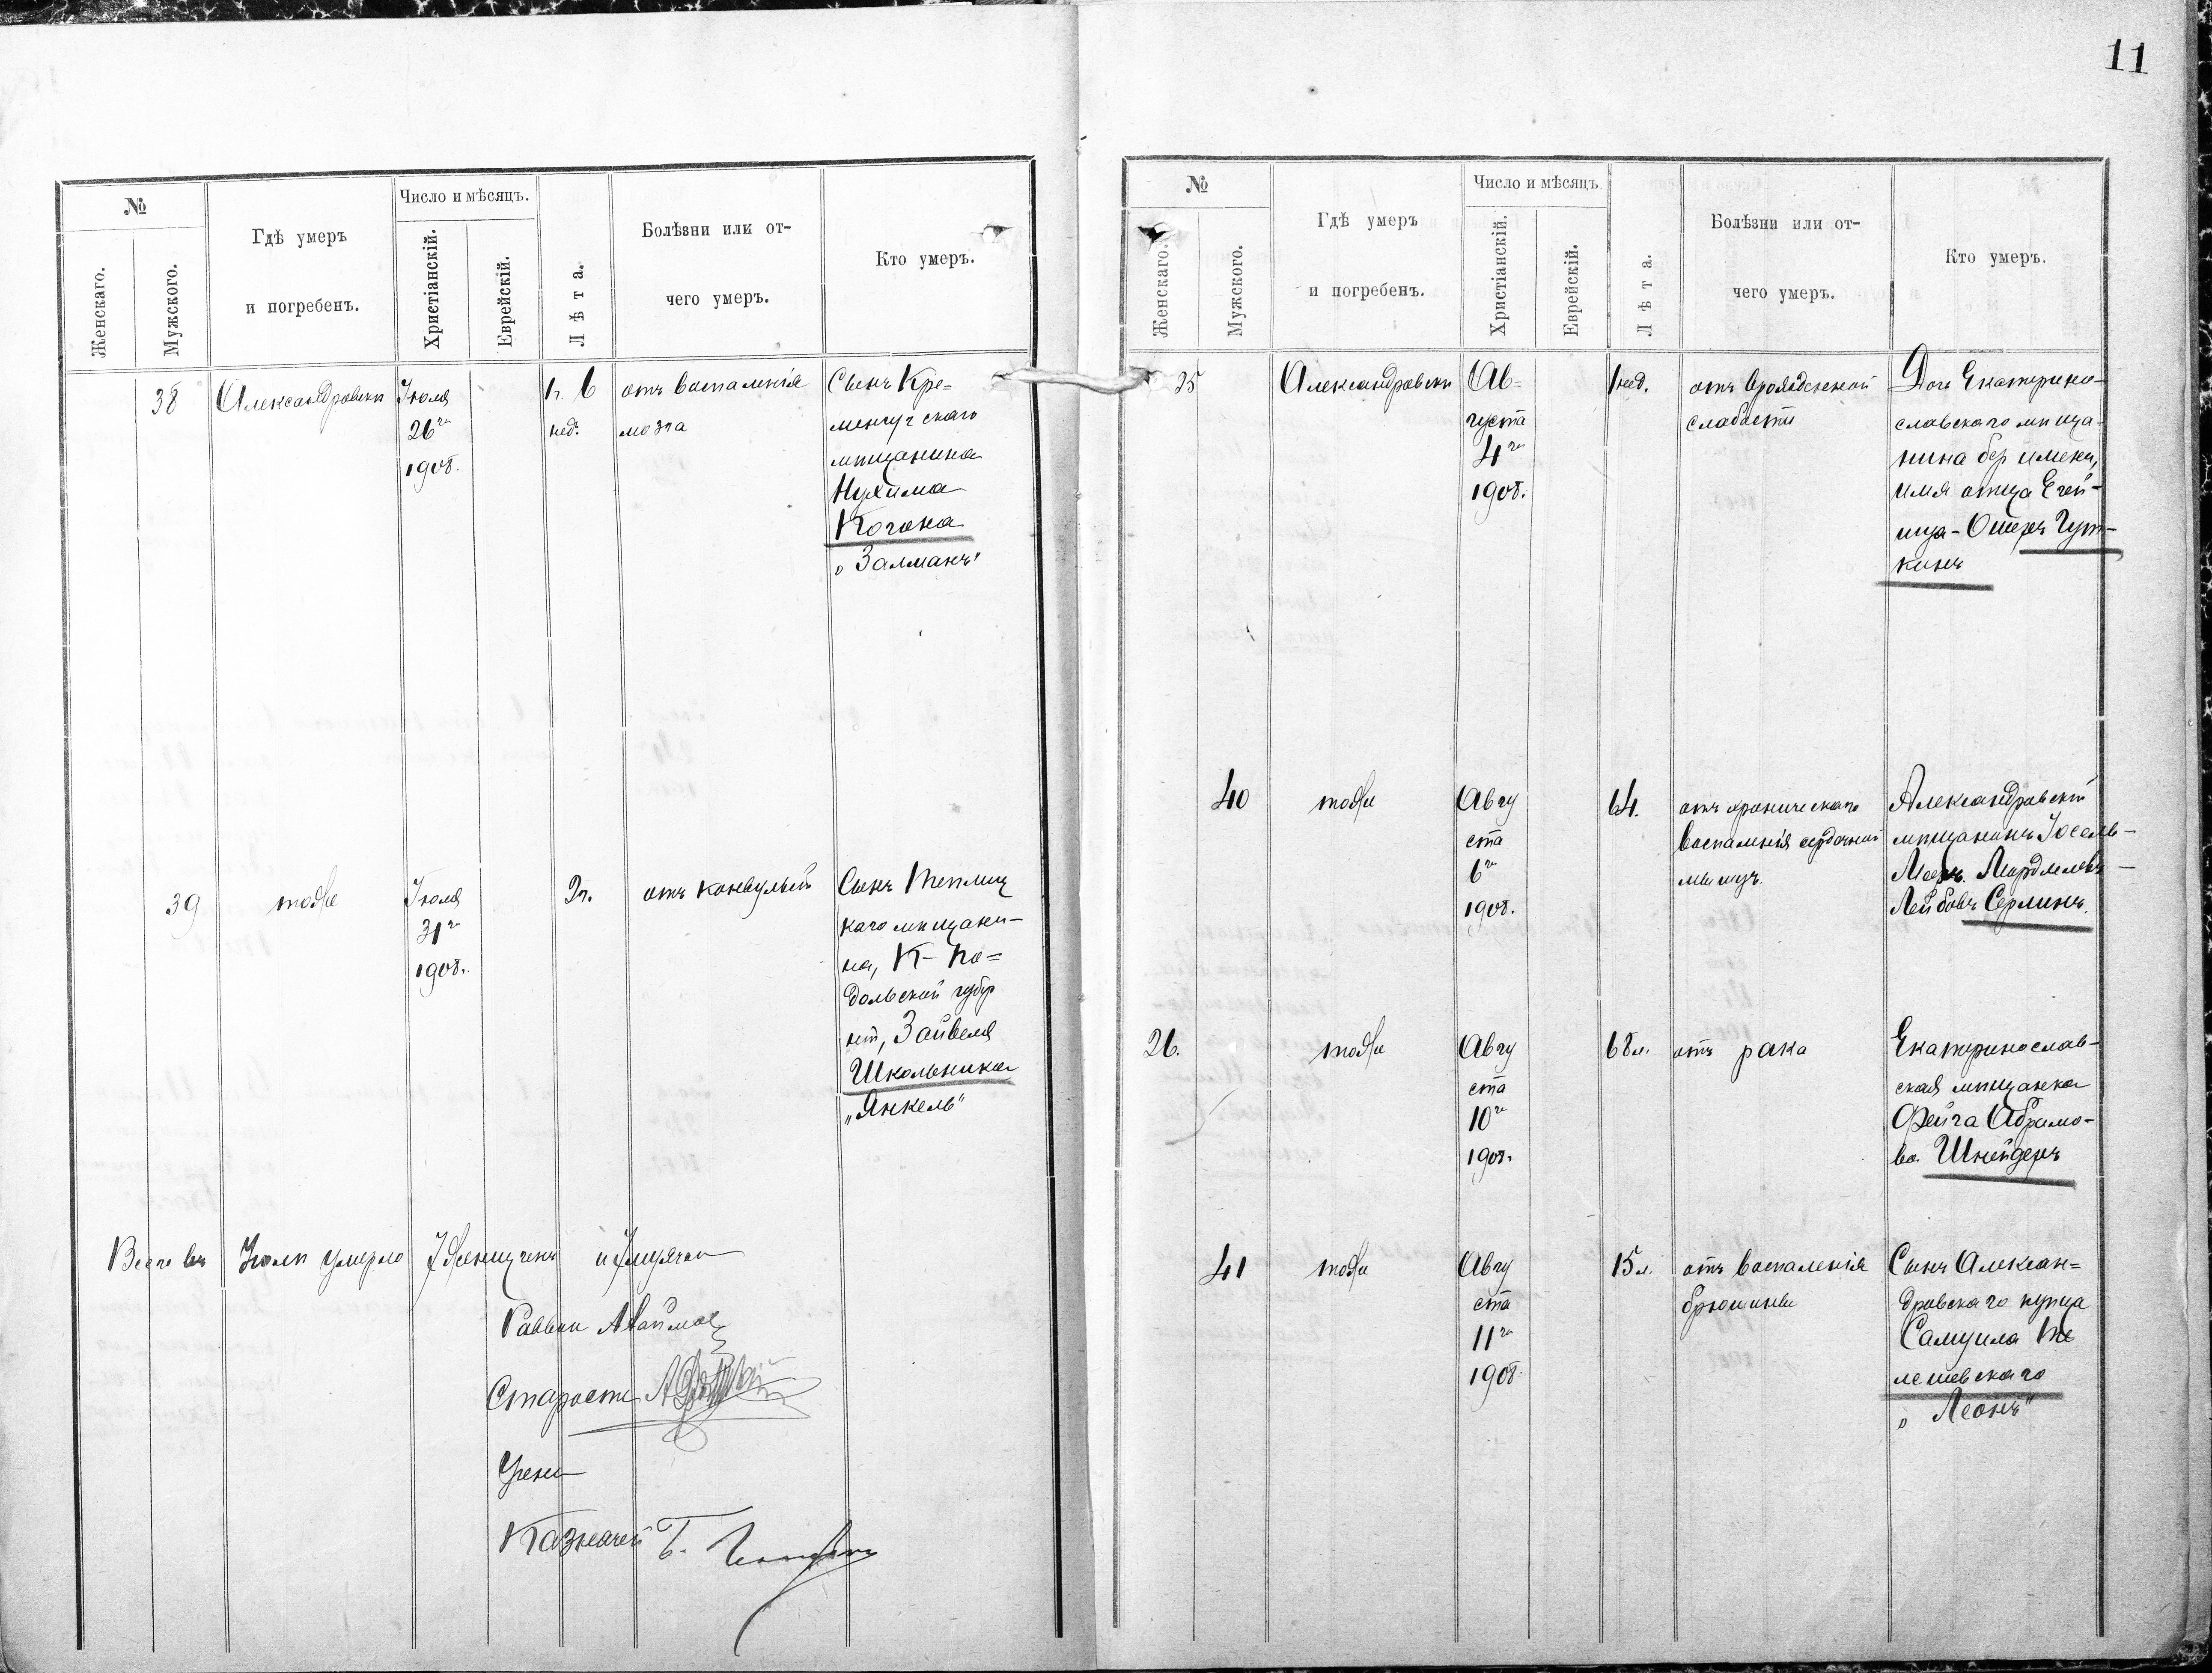 11
№
Женскаго.
Мужского.
Гдѣ умеръ
и погребенъ.
Число и мѣсяцъ.
Христіанскій.
Еврейскій.
Лѣта.
Болѣзни или от-
чего умеръ.
Кто умеръ.
38
Александровскъ
Іюля
26го
1908.
нед.
отъ воспаленія
мозга
Сынъ Кре=
менчугскаго
мѣщанина
Нухима
Когана
„Залманъ"
39
тоже
Іюля
31го
1908.
2г.
отъ конвульсій
Сынъ Теплиц
каго мѣщани-
на, К-По=
дольской губер
ніи, Зайвеля
Школьника
„Янкель"
Всего въ Іюлѣ умерло 7 женщинъ и 7 мужчин
Раввин
Староста
Учени
Казначей
№
Женскаго.
Мужского.
Гдѣ умеръ
и погребенъ.
Число и мѣсяцъ
Христіанскій.
Еврейскій.
Лѣта.
Болѣзни или от-
чего умеръ.
Кто умеръ.
25
Александровскъ
Ав=
густа
4го
1908.
1нед.
отъ врожденной
слабости
Дочь Екатерино-
славскаго мѣща-
нина без имени,
имя отца
Ошеръ Гут-
кинъ
40
тоже
Авгу
ста
6го
1908.
64.
отъ хроническаго
воспаленія сердечной
мышцъ.
Александровскій
мѣщанинъ Іосель-
Лейбовъ Серлинъ.
26.
тоже
Авгу
ста
10го
1908.
68л.
отъ рака
Екатеринослав-
ская мѣщанка
Фейга Абрамо-
ва Шнейдеръ
41
тоже
Авгу
ста
11го
1908.
15л.
отъ воспаленія
брюшины
Сынъ Алексан=
дровскаго купца
Самуила Те
лешевскаго
„Леонъ"